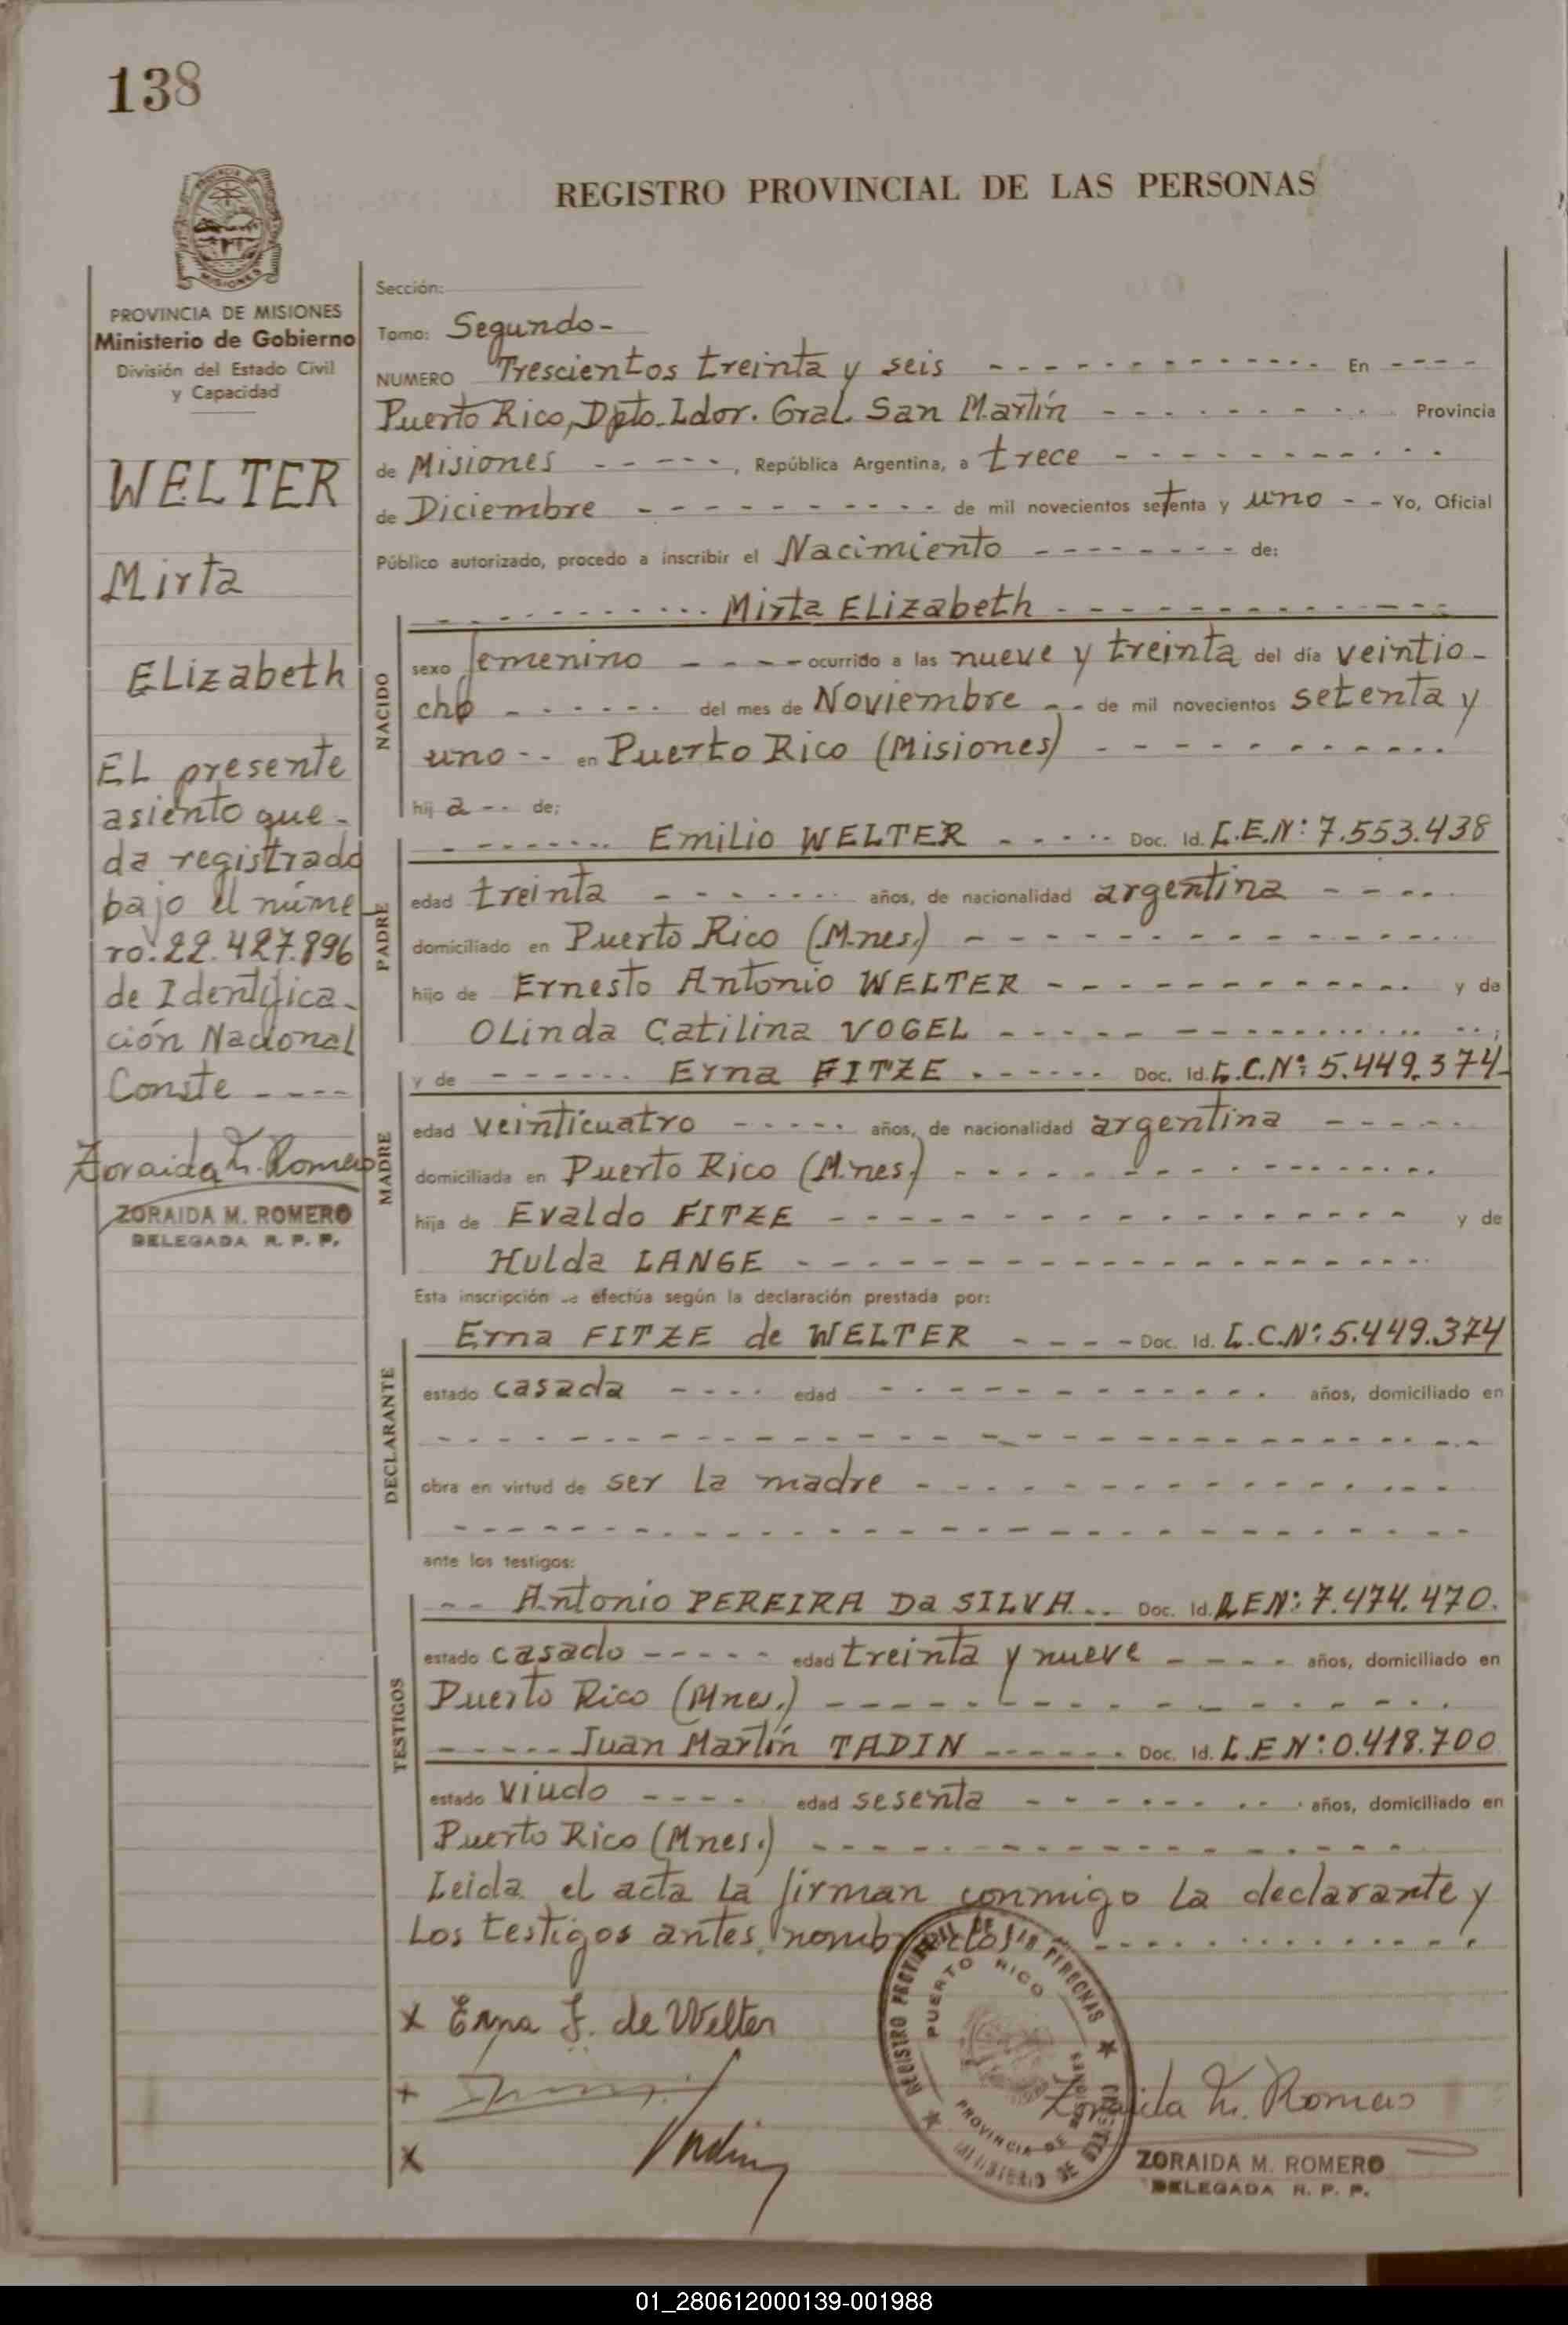 138
REGISTRO PROVINCIAL DE LAS PERSONAS
PROVINCIA DE MISIONES
Ministerio de Gobierno
División del Estado Civil
y Capacidad
WELTER
Mirta
ELizabeth
EL presente
asiento que-
da registrado
bajo el núme
ro: 22.427.896
de Identifica-
ción Nacional
Conste ----
Zoraida M. Romero
ZORAIDA M. ROMERO
DELEGADA R. P. P.
Sección:
Tomo: Segundo-
NUMERO Trescientos treinta y seis - - - - - - - - - - - - En - - - -
Puerto Rico, Dpto. Ldor. Gral. San Martín - - - - - - - - - Provincia
de Misiones - - - - -, República Argentina, a trece - - - - - - - - - -
de Diciembre - - - - - - - - - - de mil novecientos setenta y uno - - Yo, Oficial
Público autorizado, procedo a inscribir el Nacimiento - - - - - - - - de:
- - - - - - - - - - Mirta ELizabeth - - - - - - - - - - - - -
NACIDO
sexo femenino - - - - ocurrido a las nueve y treinta del día veintio-
cho - - - - - - del mes de Noviembre - - de mil novecientos setenta y
uno - - en Puerto Rico (Misiones) - - - - - - - - - - -
hij a - - de:
PADRE
- - - - - - - - Emilio WELTER - - - - - Doc. Id. L.E.Nº: 7.553.438
edad treinta - - - - - - - - años, de nacionalidad argentina - - - - -
domiciliado en Puerto Rico (M.nes.) - - - - - - - - - - - - - - -
hijo de Ernesto Antonio WELTER - - - - - - - - - - - - y de
OLinda Catilina VOGEL - - - - - - - - - - - - - - - -;
MADRE
y de - - - - - - Erna FITZE - - - - - - Doc. Id. L.C.Nº: 5.449.374-
edad veinticuatro - - - - - años, de nacionalidad argentina - - - - -
domiciliada en Puerto Rico (M.nes.) - - - - - - - - - - - - - -
hija de Evaldo FITZE - - - - - - - - - - - - - - - - y de
Hulda LANGE - - - - - - - - - - - - - - - - - -
Esta inscripción se efectúa según la declaración prestada por:
DECLARANTE
Erna FITZE de WELTER - - - - Doc. Id. L.C.Nº: 5.449.374
estado casada - - - - edad - - - - - - - - - - - - años, domiciliado en
- - - - - - - - - - - - - - - - - - - - - - - - - -
obra en virtud de ser La madre - - - - - - - - - - - - - -
- - - - - - - - - - - - - - - - - - - - - - - - - -
ante los testigos:
TESTIGOS
- - Antonio PEREIRA Da SILVA - - Doc. Id. L.E.Nº: 7.474.470.
estado casado - - - - - edad treinta y nueve - - - - años, domiciliado en
Puerto Rico (Mnes.) - - - - - - - - - - - - - - - -
- - - - - Juan Martín TADIN - - - - - - Doc. Id. L.E Nº: 0.418.700
estado viudo - - - - edad sesenta - - - - - - - - - años, domiciliado en
Puerto Rico (Mnes.) - - - - - - - - - - - - - - - -
Leida el acta La firman conmigo La declarante y
Los testigos antes nombrados - - - - - - - - - - - -
x Erna F. de Welter
+
x Tadin
REGISTRO PROVINCIAL DE LAS PERSONAS
PUERTO RICO
PROVINCIA DE MISIONES
MINISTERIO DE GOBIERNO
Zoraida M. Romero
ZORAIDA M. ROMERO
DELEGADA R. P. P.
01_280612000139-001988